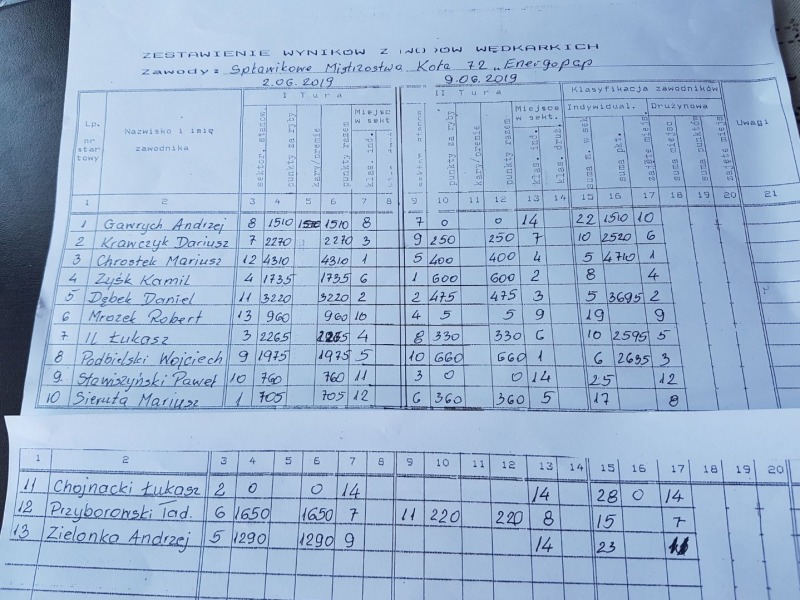 ZESTAWIENIE WYNIKÓW Z ZAWODÓW WĘDKARKICH
Zawody: Spławikowe Mistrzostwa Koła 72 "Energopap
2.06.2019 9.06.2019
Lp. nr startowy Nazwisko i imię zawodnika I Tura II Tura Klasyfikacja zawodników Uwagi
Indywidual. Drużynowa
sektor. stanow. punkty za ryby kary/premie punkty razem Miejsce w sekt. klas. ind. punkty za ryby kary/premie punkty razem Miejsce w sekt. klas. ind. klas. druż. suma m. w sek suma pkt. zajęte miejs. suma miejsc suma punktów zajęte miejsc
1 2 3 4 5 6 7 8 9 10 11 12 13 14 15 16 17 18 19 20 21
1 Gawrych Andrzej 8 1510 1510 8 7 0 0 14 22 1510 10
2 Krawczyk Dariusz 7 2270 2270 3 9 250 250 7 10 2520 6
3 Chrostek Mariusz 12 4310 4310 1 5 400 400 4 5 4710 1
4 Zyśk Kamil 4 1735 1735 6 1 600 600 2 8 4
5 Dębek Daniel 11 3220 3220 2 2 475 475 3 5 3695 2
6 Mrozek Robert 13 960 960 10 4 5 5 9 19 9
7 Il Łukasz 3 2265 2265 4 8 330 330 6 10 2595 5
8 Podbielski Wojciech 9 1975 1975 5 10 660 660 1 6 2635 3
9. Stawiszyński Paweł 10 760 760 11 3 0 0 14 25 12
10 Sieruta Mariusz 1 705 705 12 6 360 360 5 17 8
1 2 3 4 5 6 7 8 9 10 11 12 13 14 15 16 17 18 19 20
11 Chojnacki Łukasz 2 0 0 14 14 28 0 14
12 Przyborowski Tad. 6 1650 1650 7 11 220 220 8 15 7
13 Zielonka Andrzej 5 1290 1290 9 14 23 11